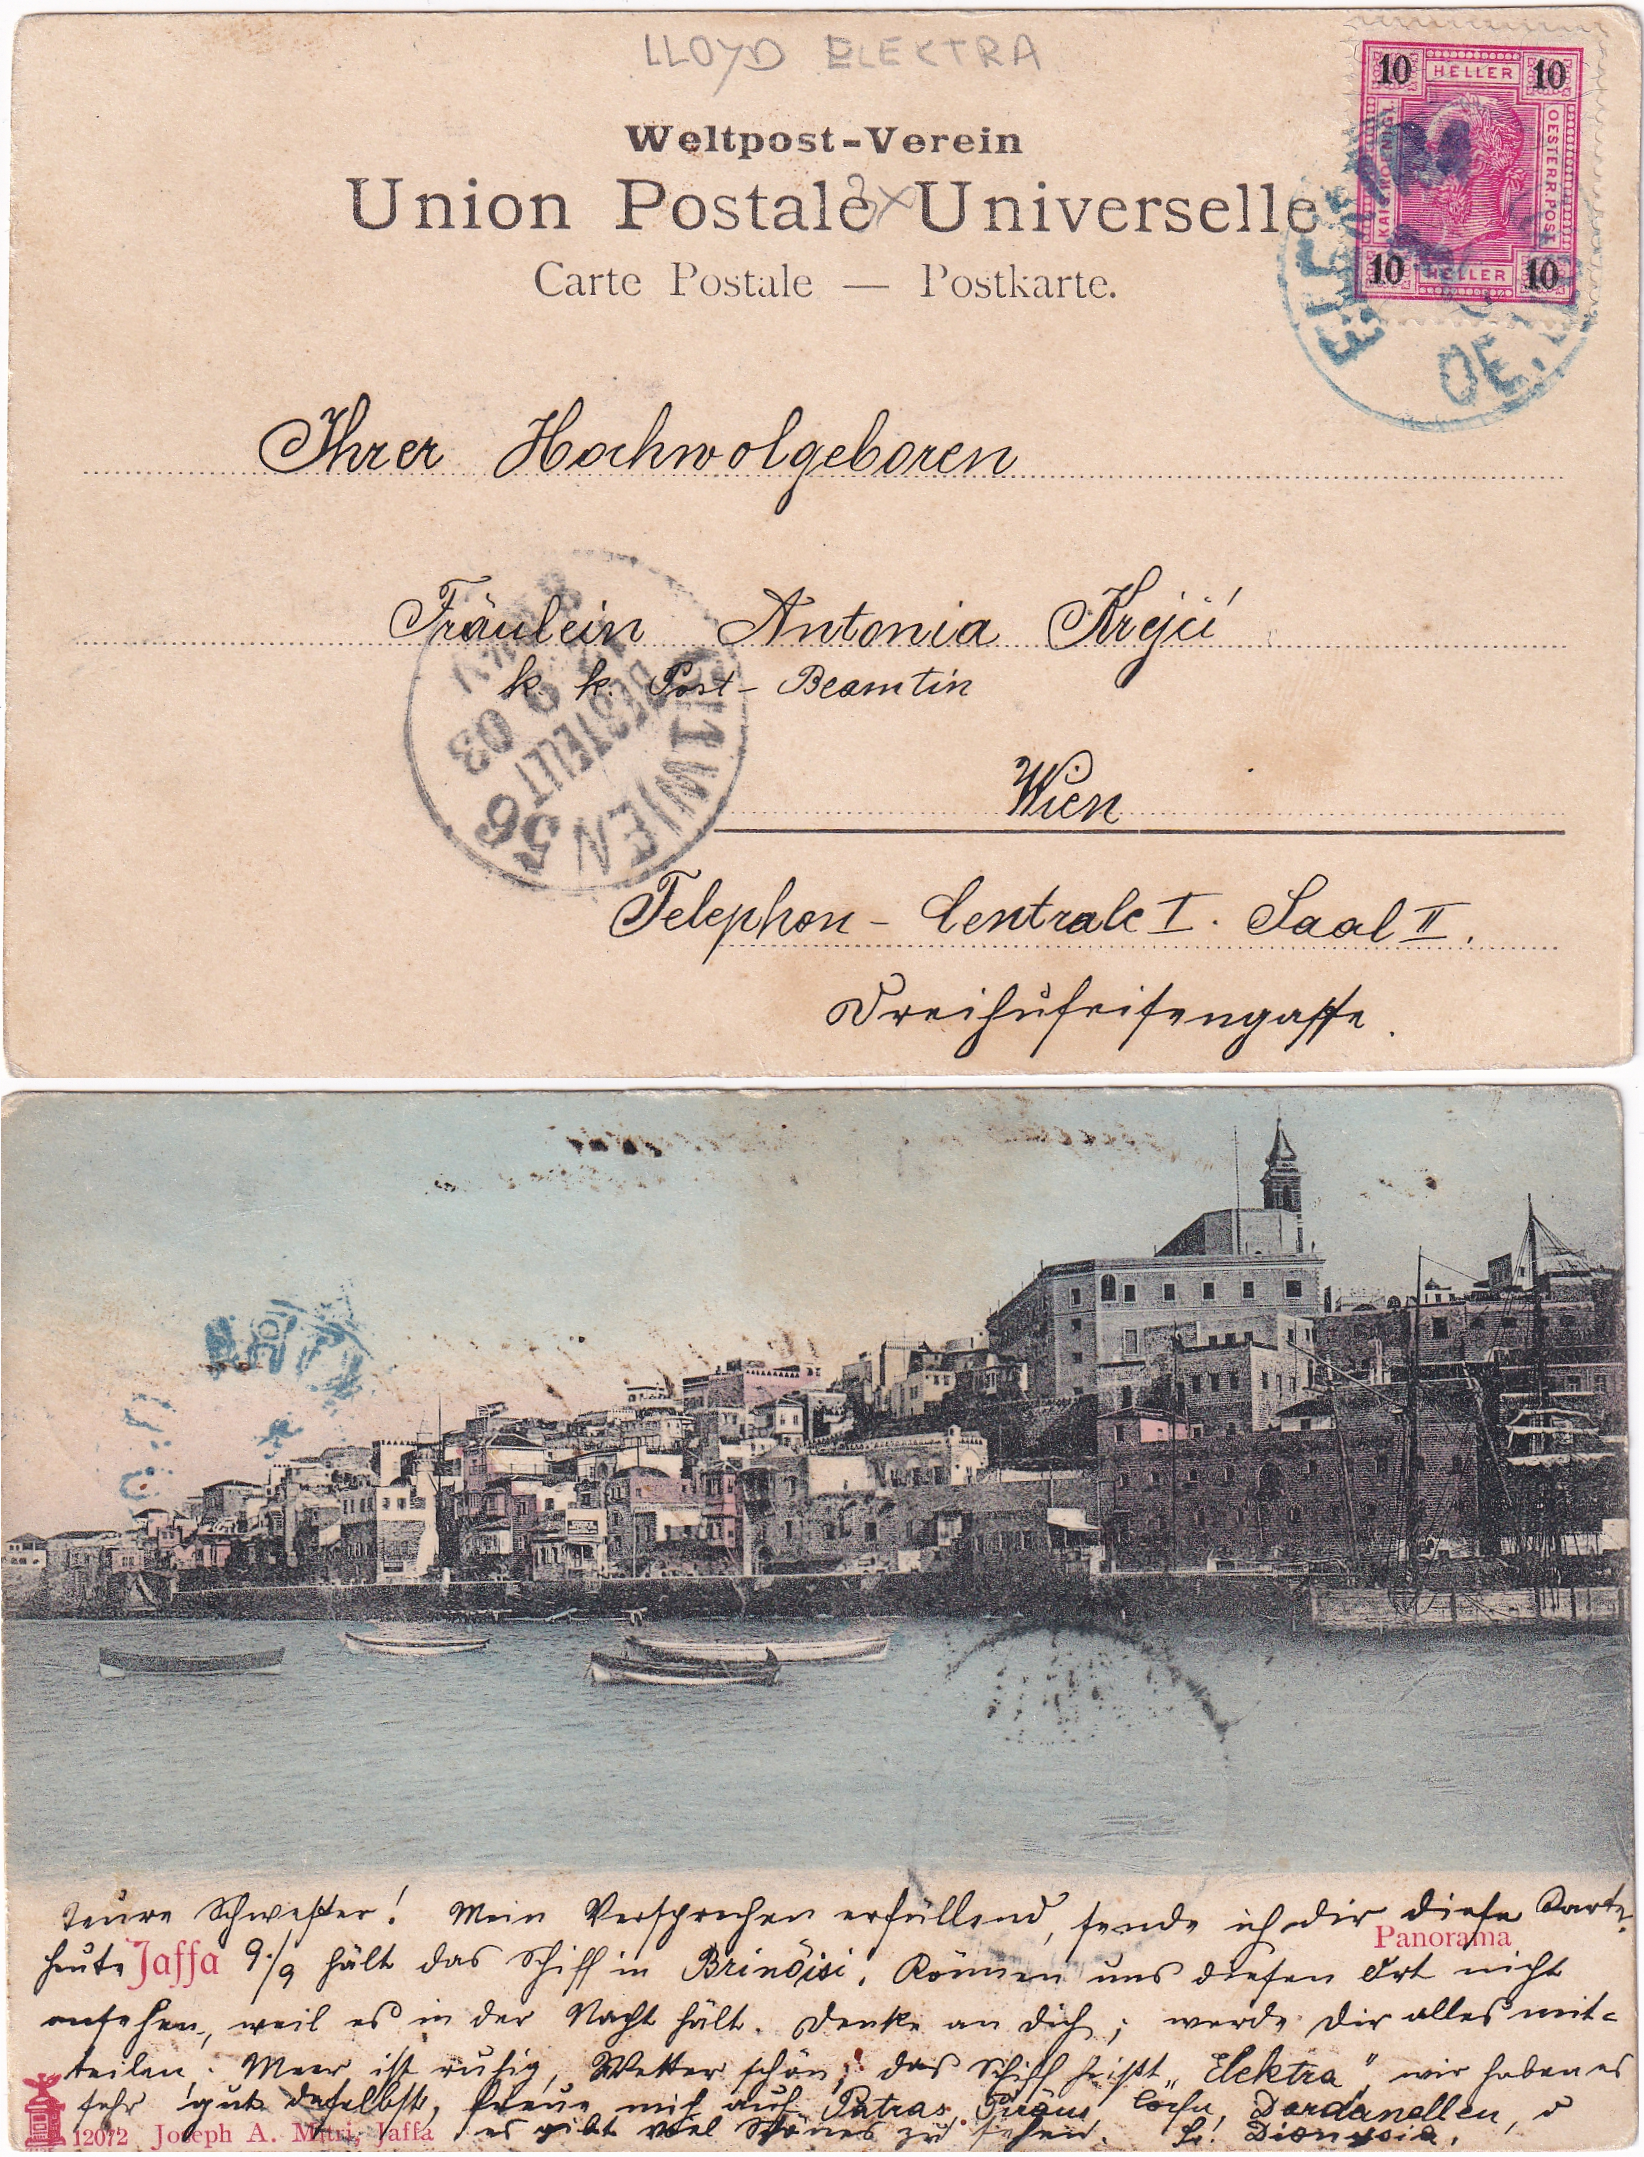 LLOYD ELEKTRA
10 HELLER 10
KAISERKOENIGL.
OESTERR.POST
10 HELLER 10
Weltpost-Verein
Union Postale Universelle
Carte Postale — Postkarte.
OE.
Ihrer Hochwolgeboren
Fräulein Antonia Krejčí
k. k. Post-Beamtin
Wien
9 03
BESTELLT
WIEN 56
Telephon-Centrale I. Saal II.
Dreihufeisengasse.
Teure Schwester! Mein Versprechen erfüllend, sende ich dir diese Karte.
Panorama
heute Jaffa 9./9 hält das Schiff in Brindisi. Können uns diesen Ort nicht
ansehen, weil es in der Nacht hält. Denke an dich; werde Dir alles mit-
teilen. Meer ist ruhig, Wetter schön; das Schiff heißt „Elektra" wir haben es
sehr gut daselbst, freue mich auf Patras, Piräus, Corfu, Dardanellen,
12072 Joseph A. Mitri, Jaffa
es gibt viel Schönes zu sehen. Dionysia.